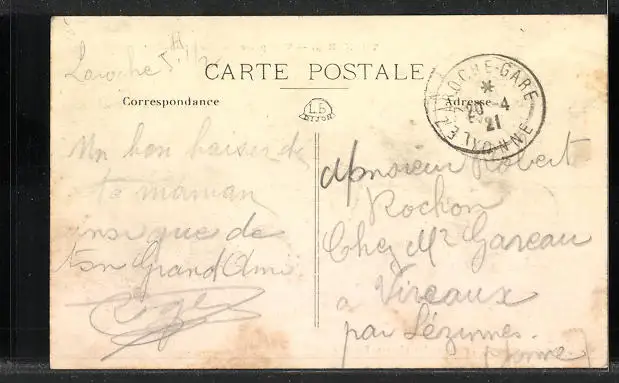 Laroche
CARTE POSTALE
Correspondance
LB
DIJON
Adresse
LAROCHE-GARE
*
-4
21
YONNE
Un bon baiser de
ta maman
ainsi que de
ton Grand Ami
Monsieur Robert
Rochon
Chez Mr Gareau
a Vireaux
par Lézinnes.
(Yonne)